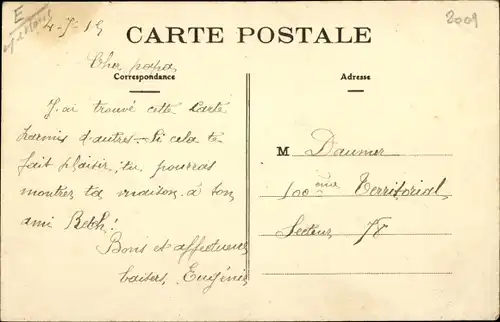 E
2009
4-7-15
CARTE POSTALE
Cher papa
Correspondance
Adresse
J'ai trouvé cette carte
parmis d'autres. Si cela te
fait plaisir, tu pourras
montrer ta maison à ton
ami
Bons et affectueux
baisers, Eugénie
M Daumer
100eme Territorial
Secteur 78